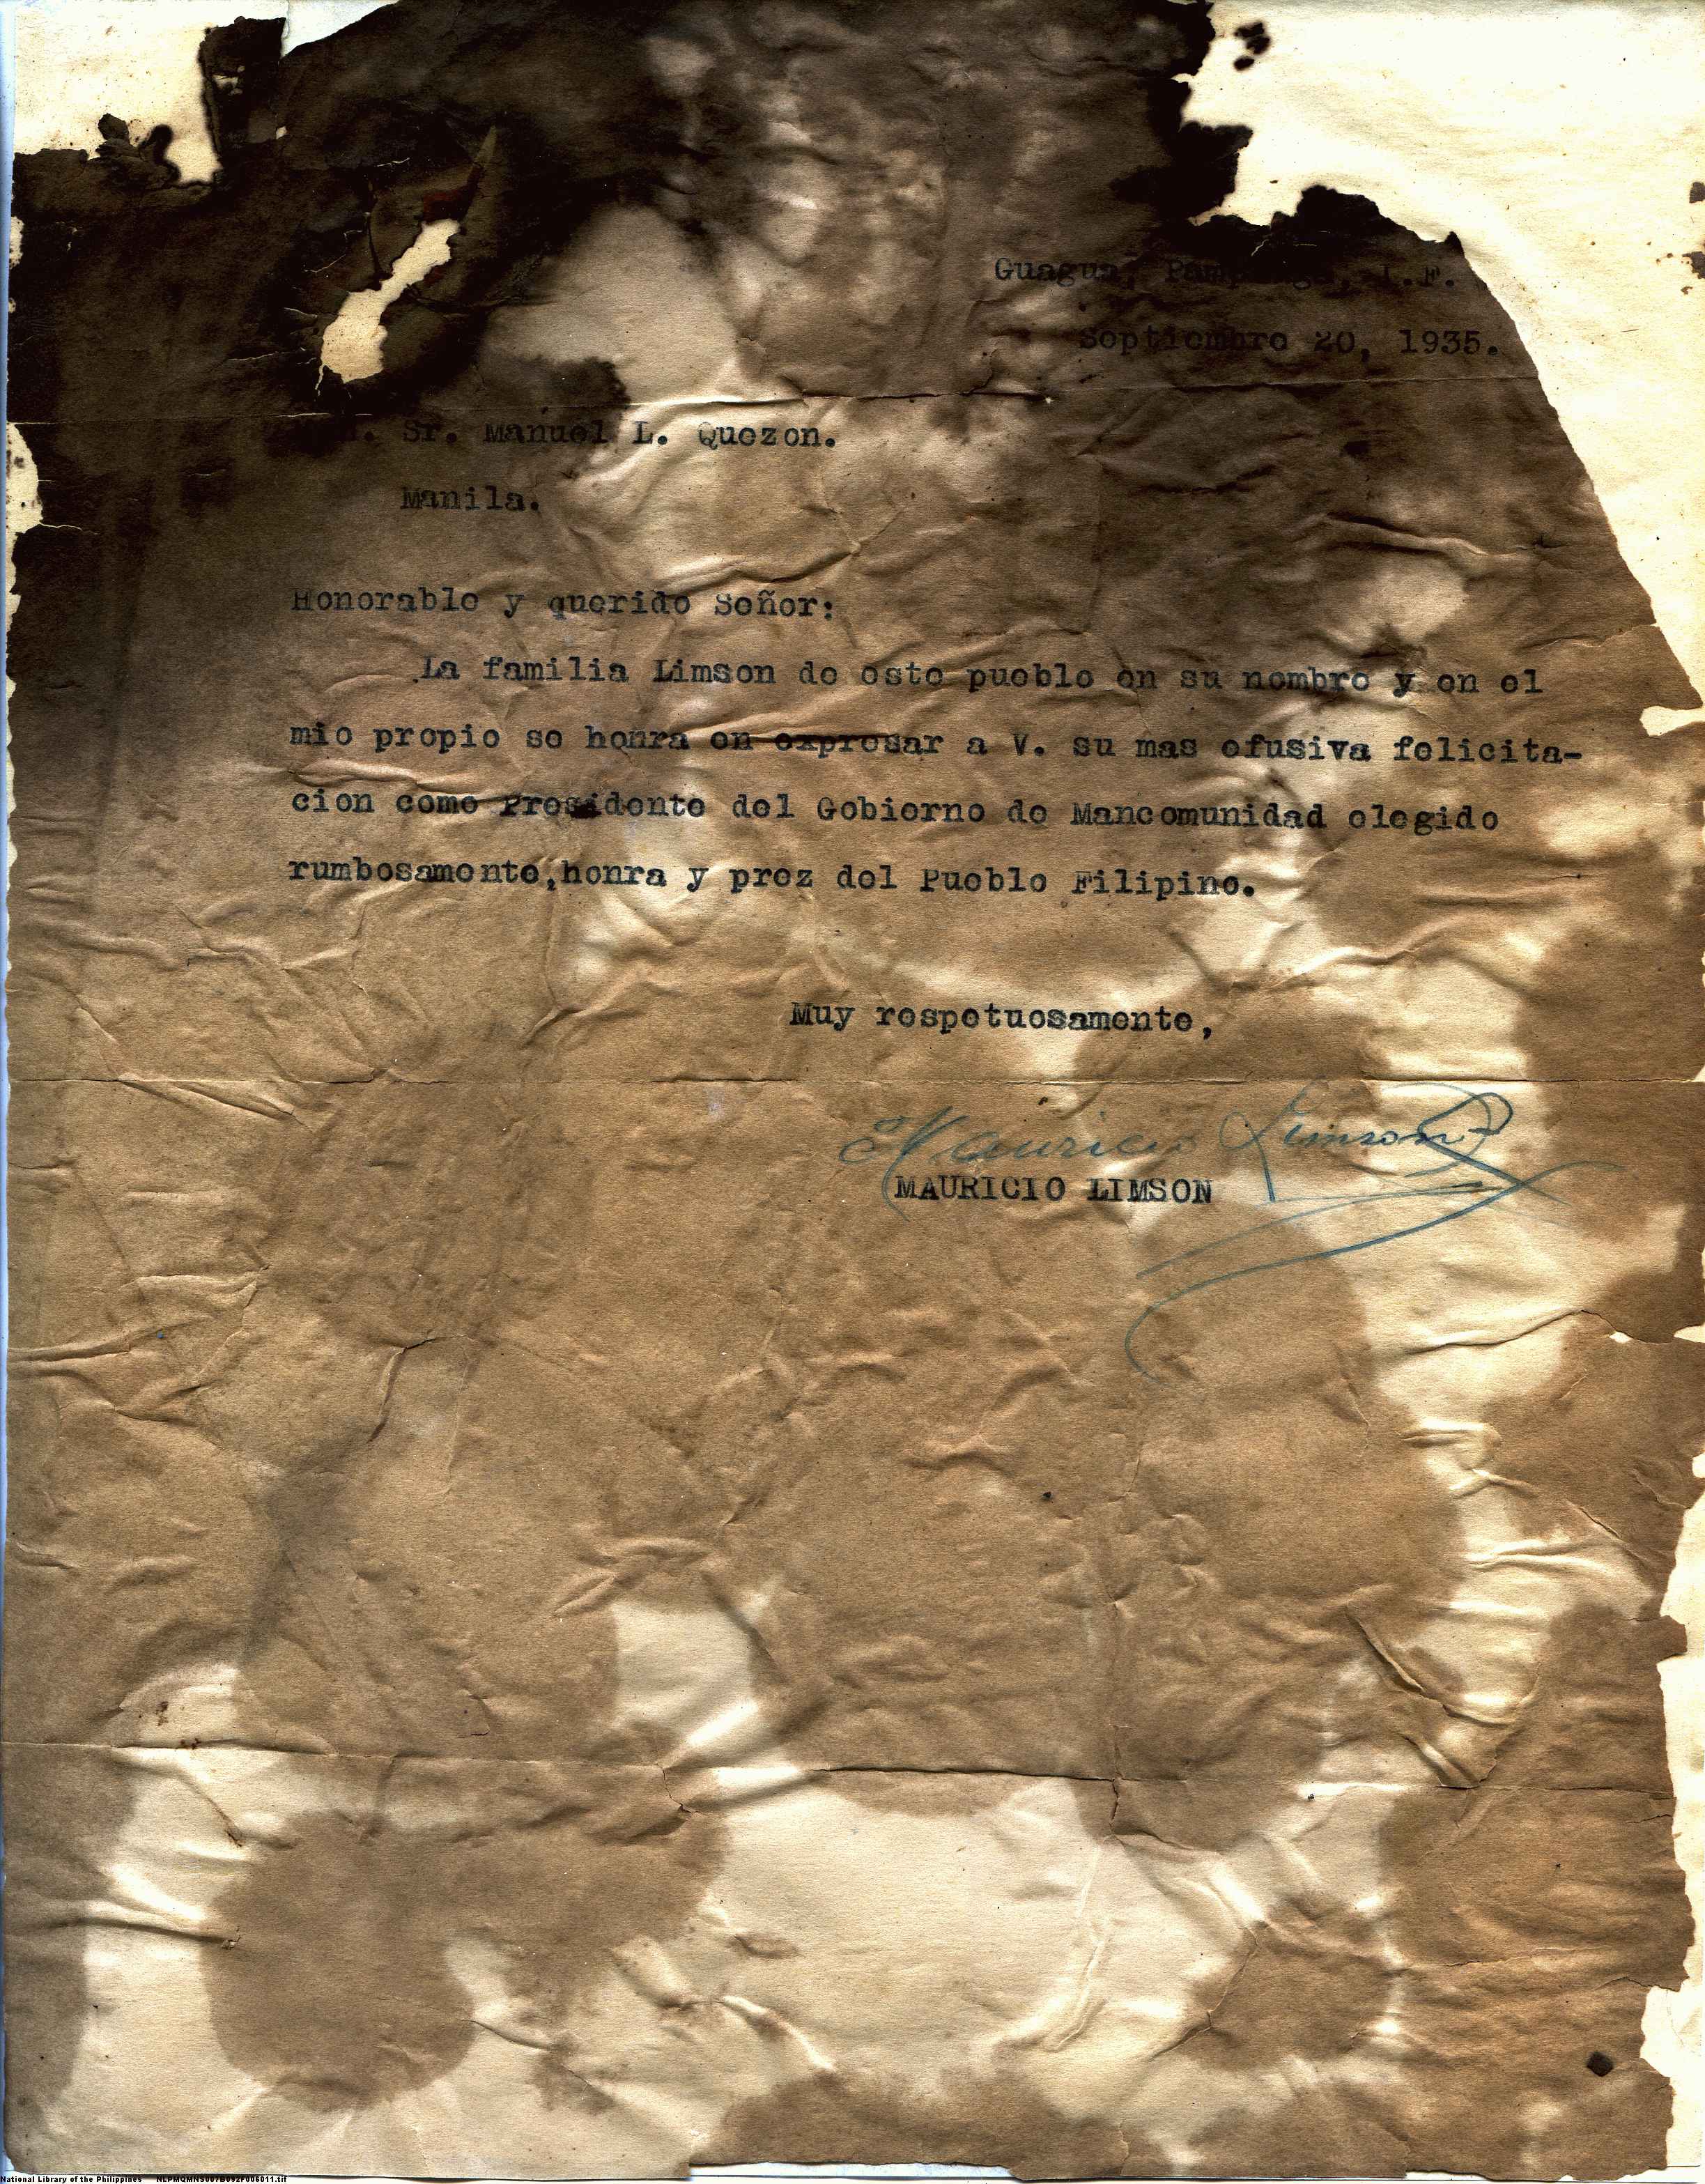 Guagua, Pampanga, I.F.
Septiembre 20, 1935.
Sr. Manuel L. Quezon.
Manila.
Honorable y querido Señor:
La familia Limson de este pueblo en su nombre y en el
mio propio se honra en expresar a V. su mas efusiva felicita-
cion como Presidente del Gobierno de Mancomunidad elegido
rumbosamente,honra y prez del Pueblo Filipino.
Muy respetuosamente,
Mauricio Limson
MAURICIO LIMSON
National Library of the Philippines